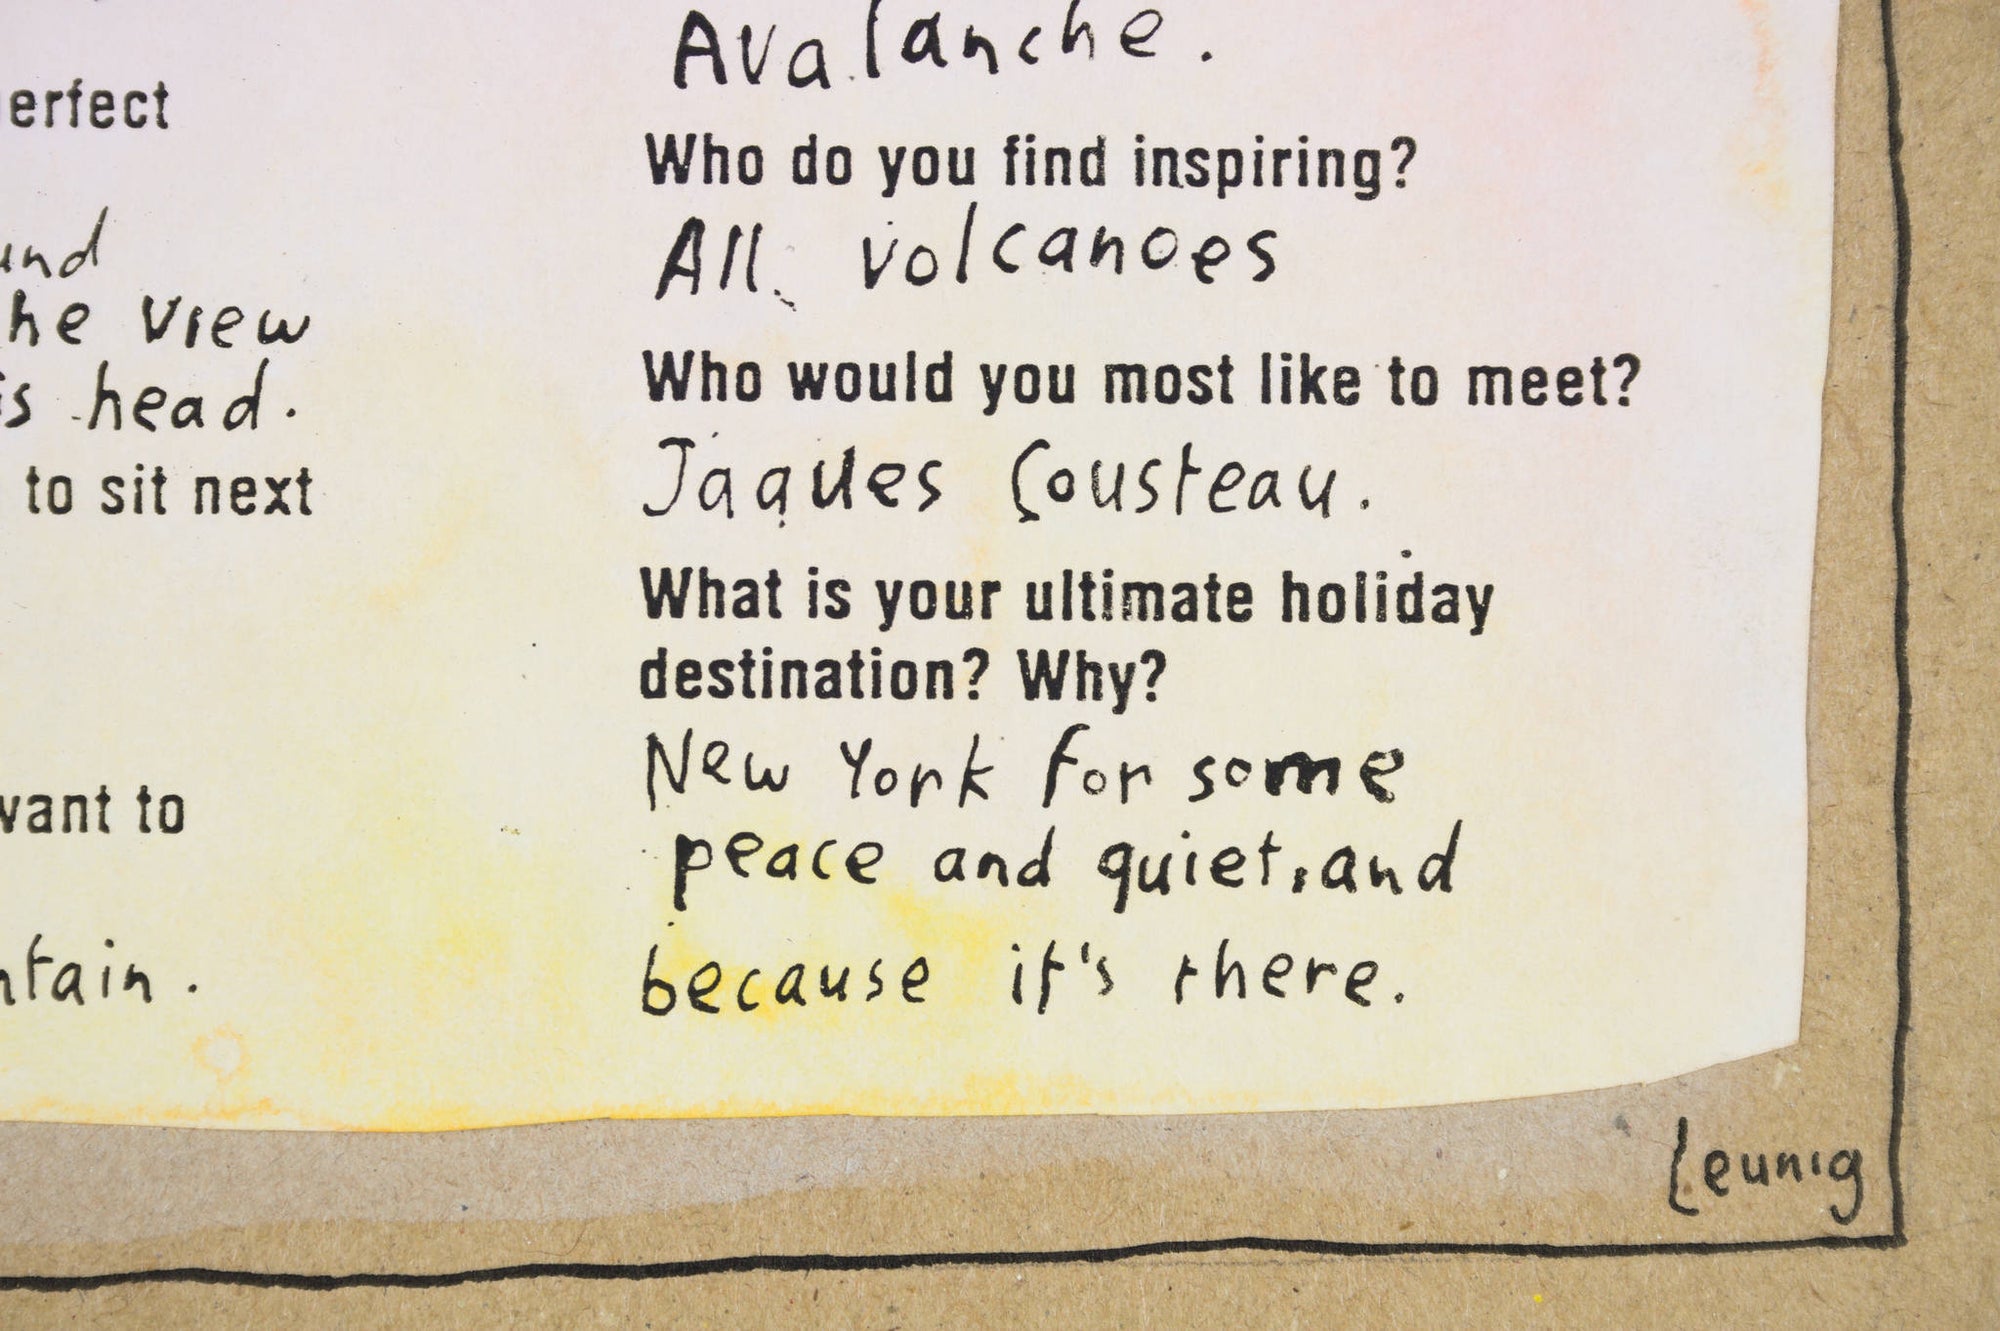 erfect
und
he view
is head.
to sit next
want to
ntain.
Avalanche.
Who do you find inspiring?
All volcanoes
Who would you most like to meet?
Jaques Cousteau.
What is your ultimate holiday
destination? Why?
New York for some
peace and quiet, and
because it's there.
Leunig